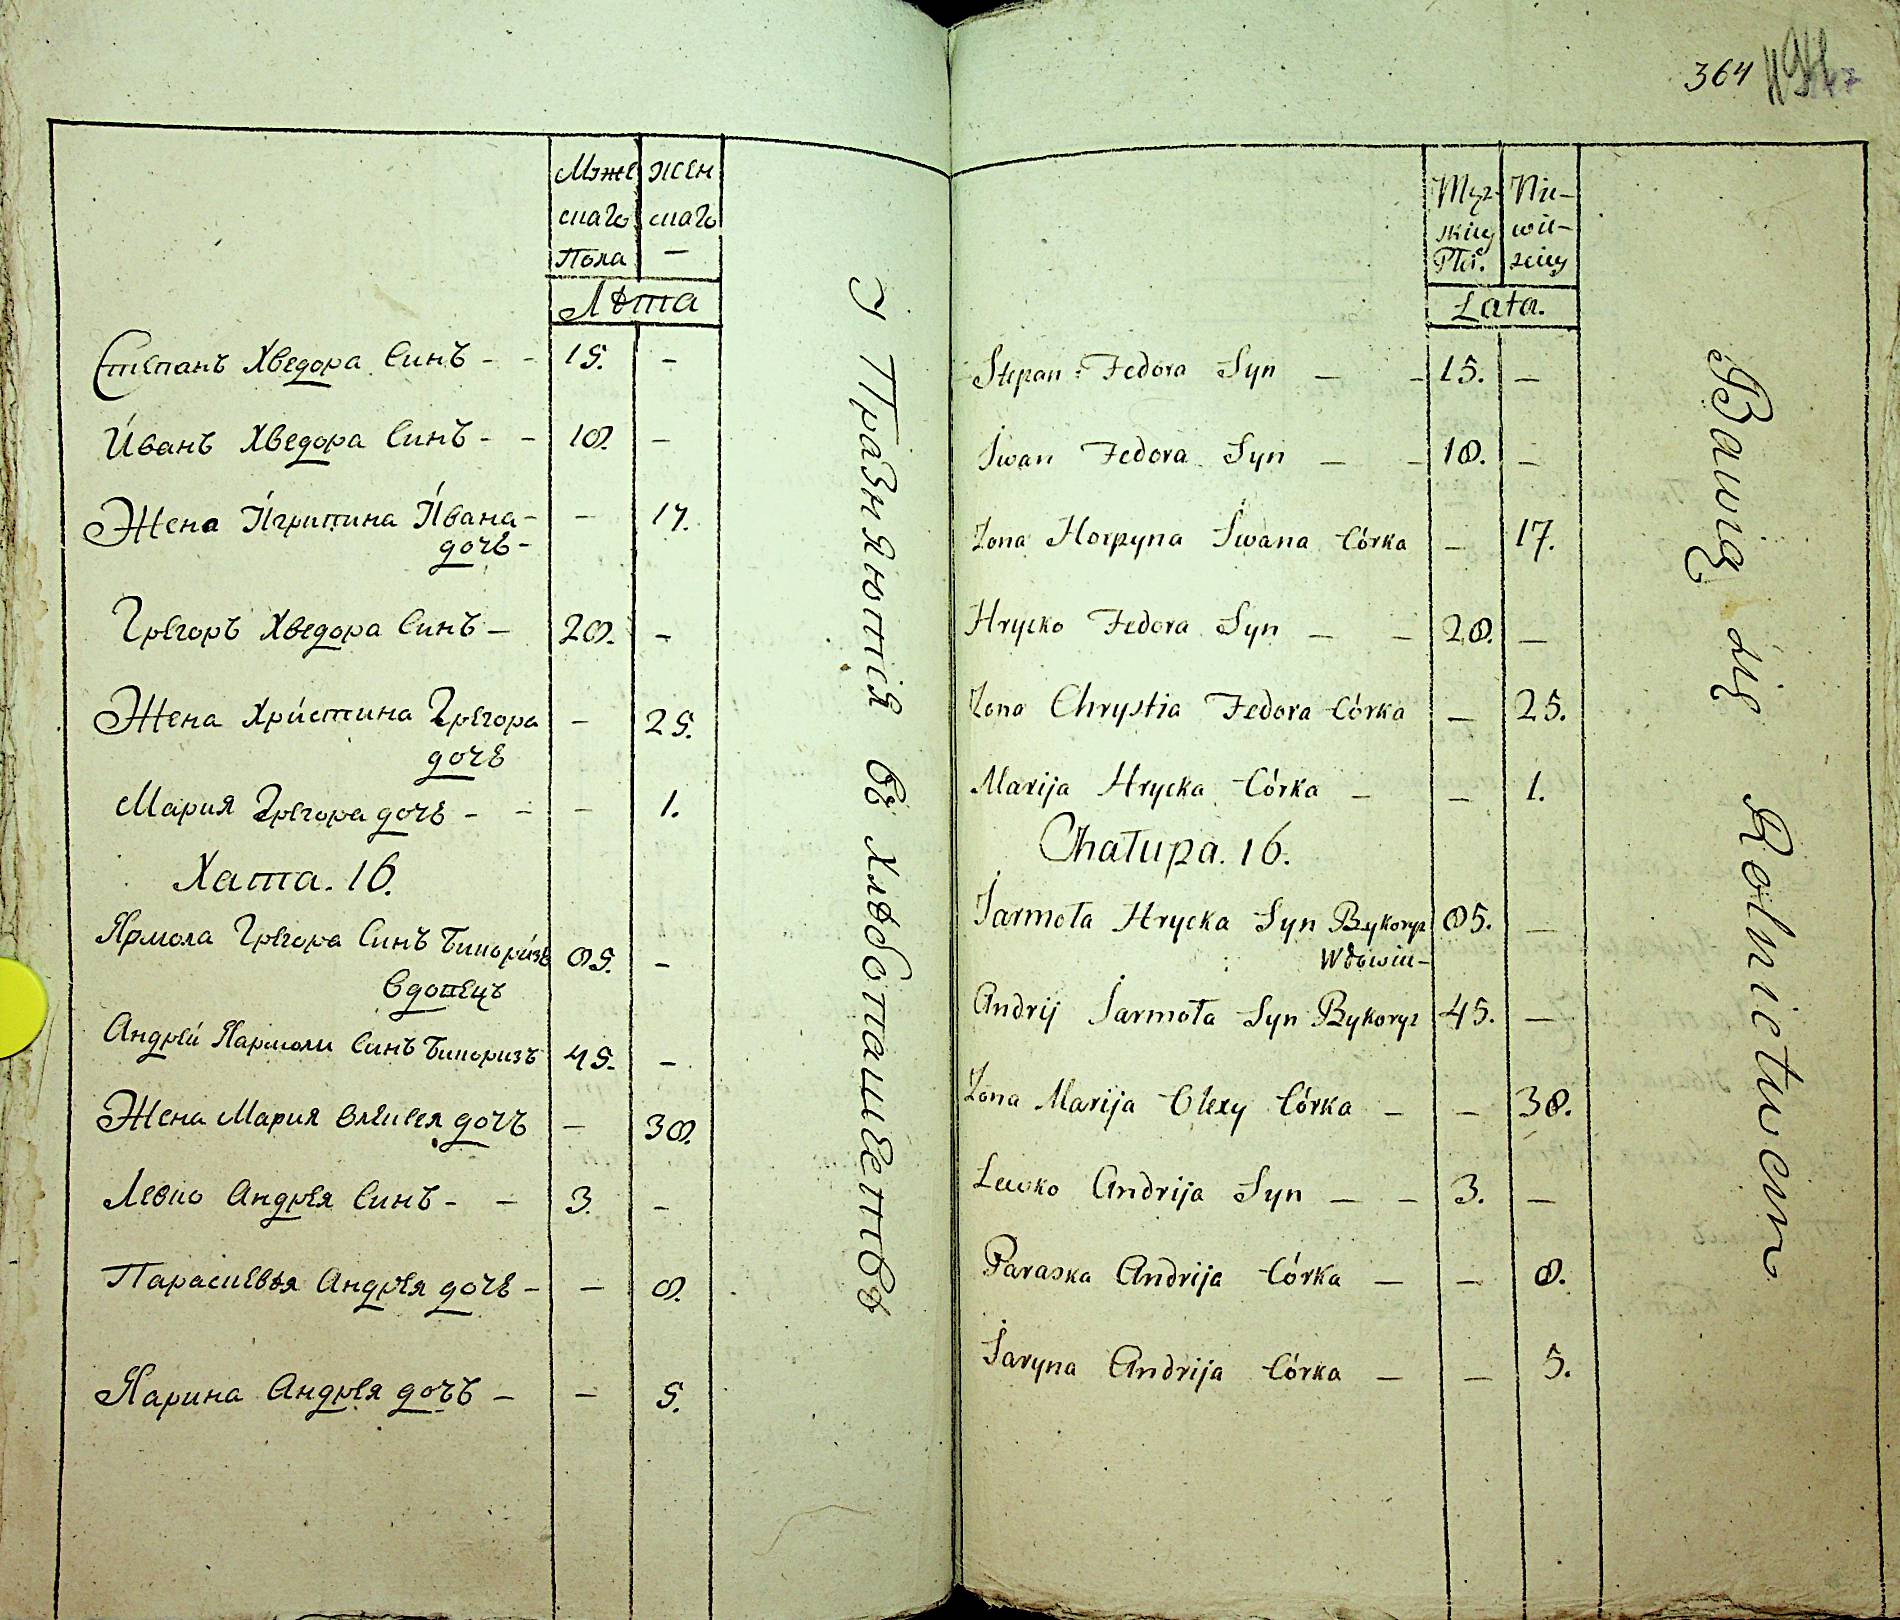 364
Мэже
скаго
Пола
жен
скаго
—
Лѣта
Степанъ Хведора Синъ - - 15. -
Иванъ Хведора Синъ - - 18. -
Жена Игрипина Ивана - - 17.
дочь -
Грегоръ Хведора Синъ - 28. -
Жена Христина Грегора - 25.
дочь
Мария Грегора дочь - - - 1.
Хата. 16.
Ярмола Грегора Синъ Бикоризъ 85. -
вдовецъ
Андрѣй Ярмоли Синъ Бикоризъ 45. -
Жена Мария Олѣксея дочъ - 38.
Левко Андрѣя Синъ - - 3. -
Параскевья Андрѣя дочь - - 8.
Ярина Андрѣя дочъ - - 5.
У Празняются въ хлѣбопашествѣ
Męz-
skiey
Płci.
Nie-
wie-
sciey
Lata.
Stepan Fedora Syn — - 15. —
Iwan Fedora Syn — - 18. —
Zona Horpyna Iwana Córka — 17.
Hrycko Fedora Syn — - 28. —
Zona Chrystia Fedora Córka — 25.
Marija Hrycka Córka — — 1.
Chałupa. 16.
Jarmoła Hrycka Syn Bykoryz 85. —
Wdowiec -
Andrij Jarmoła Syn Bykoryz 45. —
Zona Marija Olexy Córka — — 38.
Lewko Andrija Syn — — 3. —
Paraska Andrija Córka — — 8.
Jaryna Andrija Córka — — 5.
Bawią się Rolnictwem